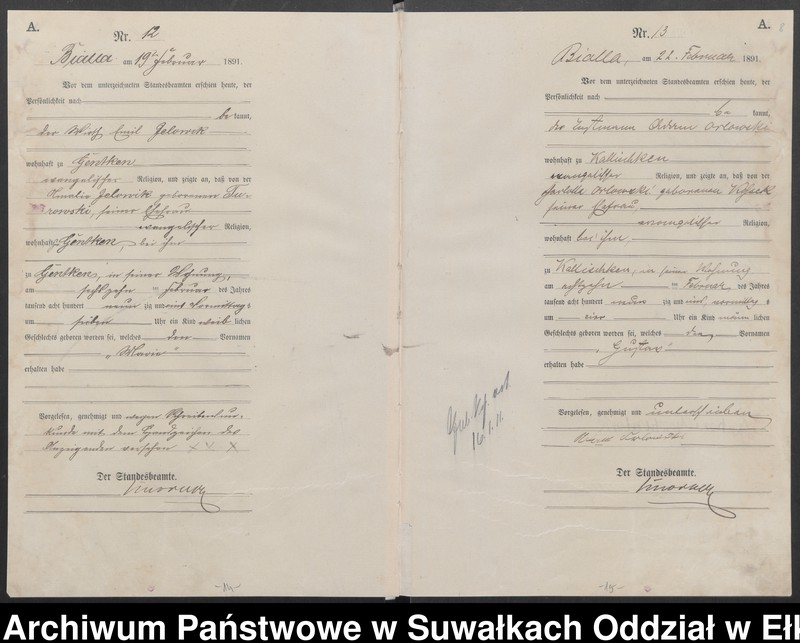 A.
Nr. 12
Bialla am 19ten Februar 1891.
Vor dem unterzeichneten Standesbeamten erschien heute, der
Persönlichkeit nach
be kannt,
der Wirth Emil Jelowik
wohnhaft zu Gentken
evangelischer Religion, und zeigte an, daß von der
Amalie Jelowik geborenen Tu-
rowski, seiner Ehefrau
evangelischer Religion,
wohnhaft zu Gentken, bei ihm
zu Gentken, in seiner Wohnung,
am sechszehn ten Februar des Jahres
tausend acht hundert neun zig und eins Vormittags
um sieben Uhr ein Kind weib lichen
Geschlechts geboren worden sei, welches den Vornamen
„Marie"
erhalten habe
Vorgelesen, genehmigt und wegen Schreibensun-
kunde mit dem Handzeichen des
Anzeigenden versehen XXX
Der Standesbeamte.
-14-
A.
Nr. 13
Bialla, am 22. Februar 1891.
Vor dem unterzeichneten Standesbeamten erschien heute, der
Persönlichkeit nach
be kannt,
der Instmann Adam Orlowski
wohnhaft zu Kallischken
evangelischer Religion, und zeigte an, daß von der
Charlotte Orlowski geborenen
seiner Ehefrau
evangelischer Religion,
wohnhaft bei ihm,
zu Kallischken, in seiner Wohnung
am achtzehn ten Februar des Jahres
tausend acht hundert neun zig und eins vormittags
um vier Uhr ein Kind männ lichen
Geschlechts geboren worden sei, welches den Vornamen
„Gustav"
erhalten habe
Vorgelesen, genehmigt und unterschrieben
Orlowski
Der Standesbeamte.
-15-
Archiwum Państwowe w Suwałkach Oddział w Eł